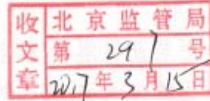 收文章
北京监管局
第291号
2017年3月15日